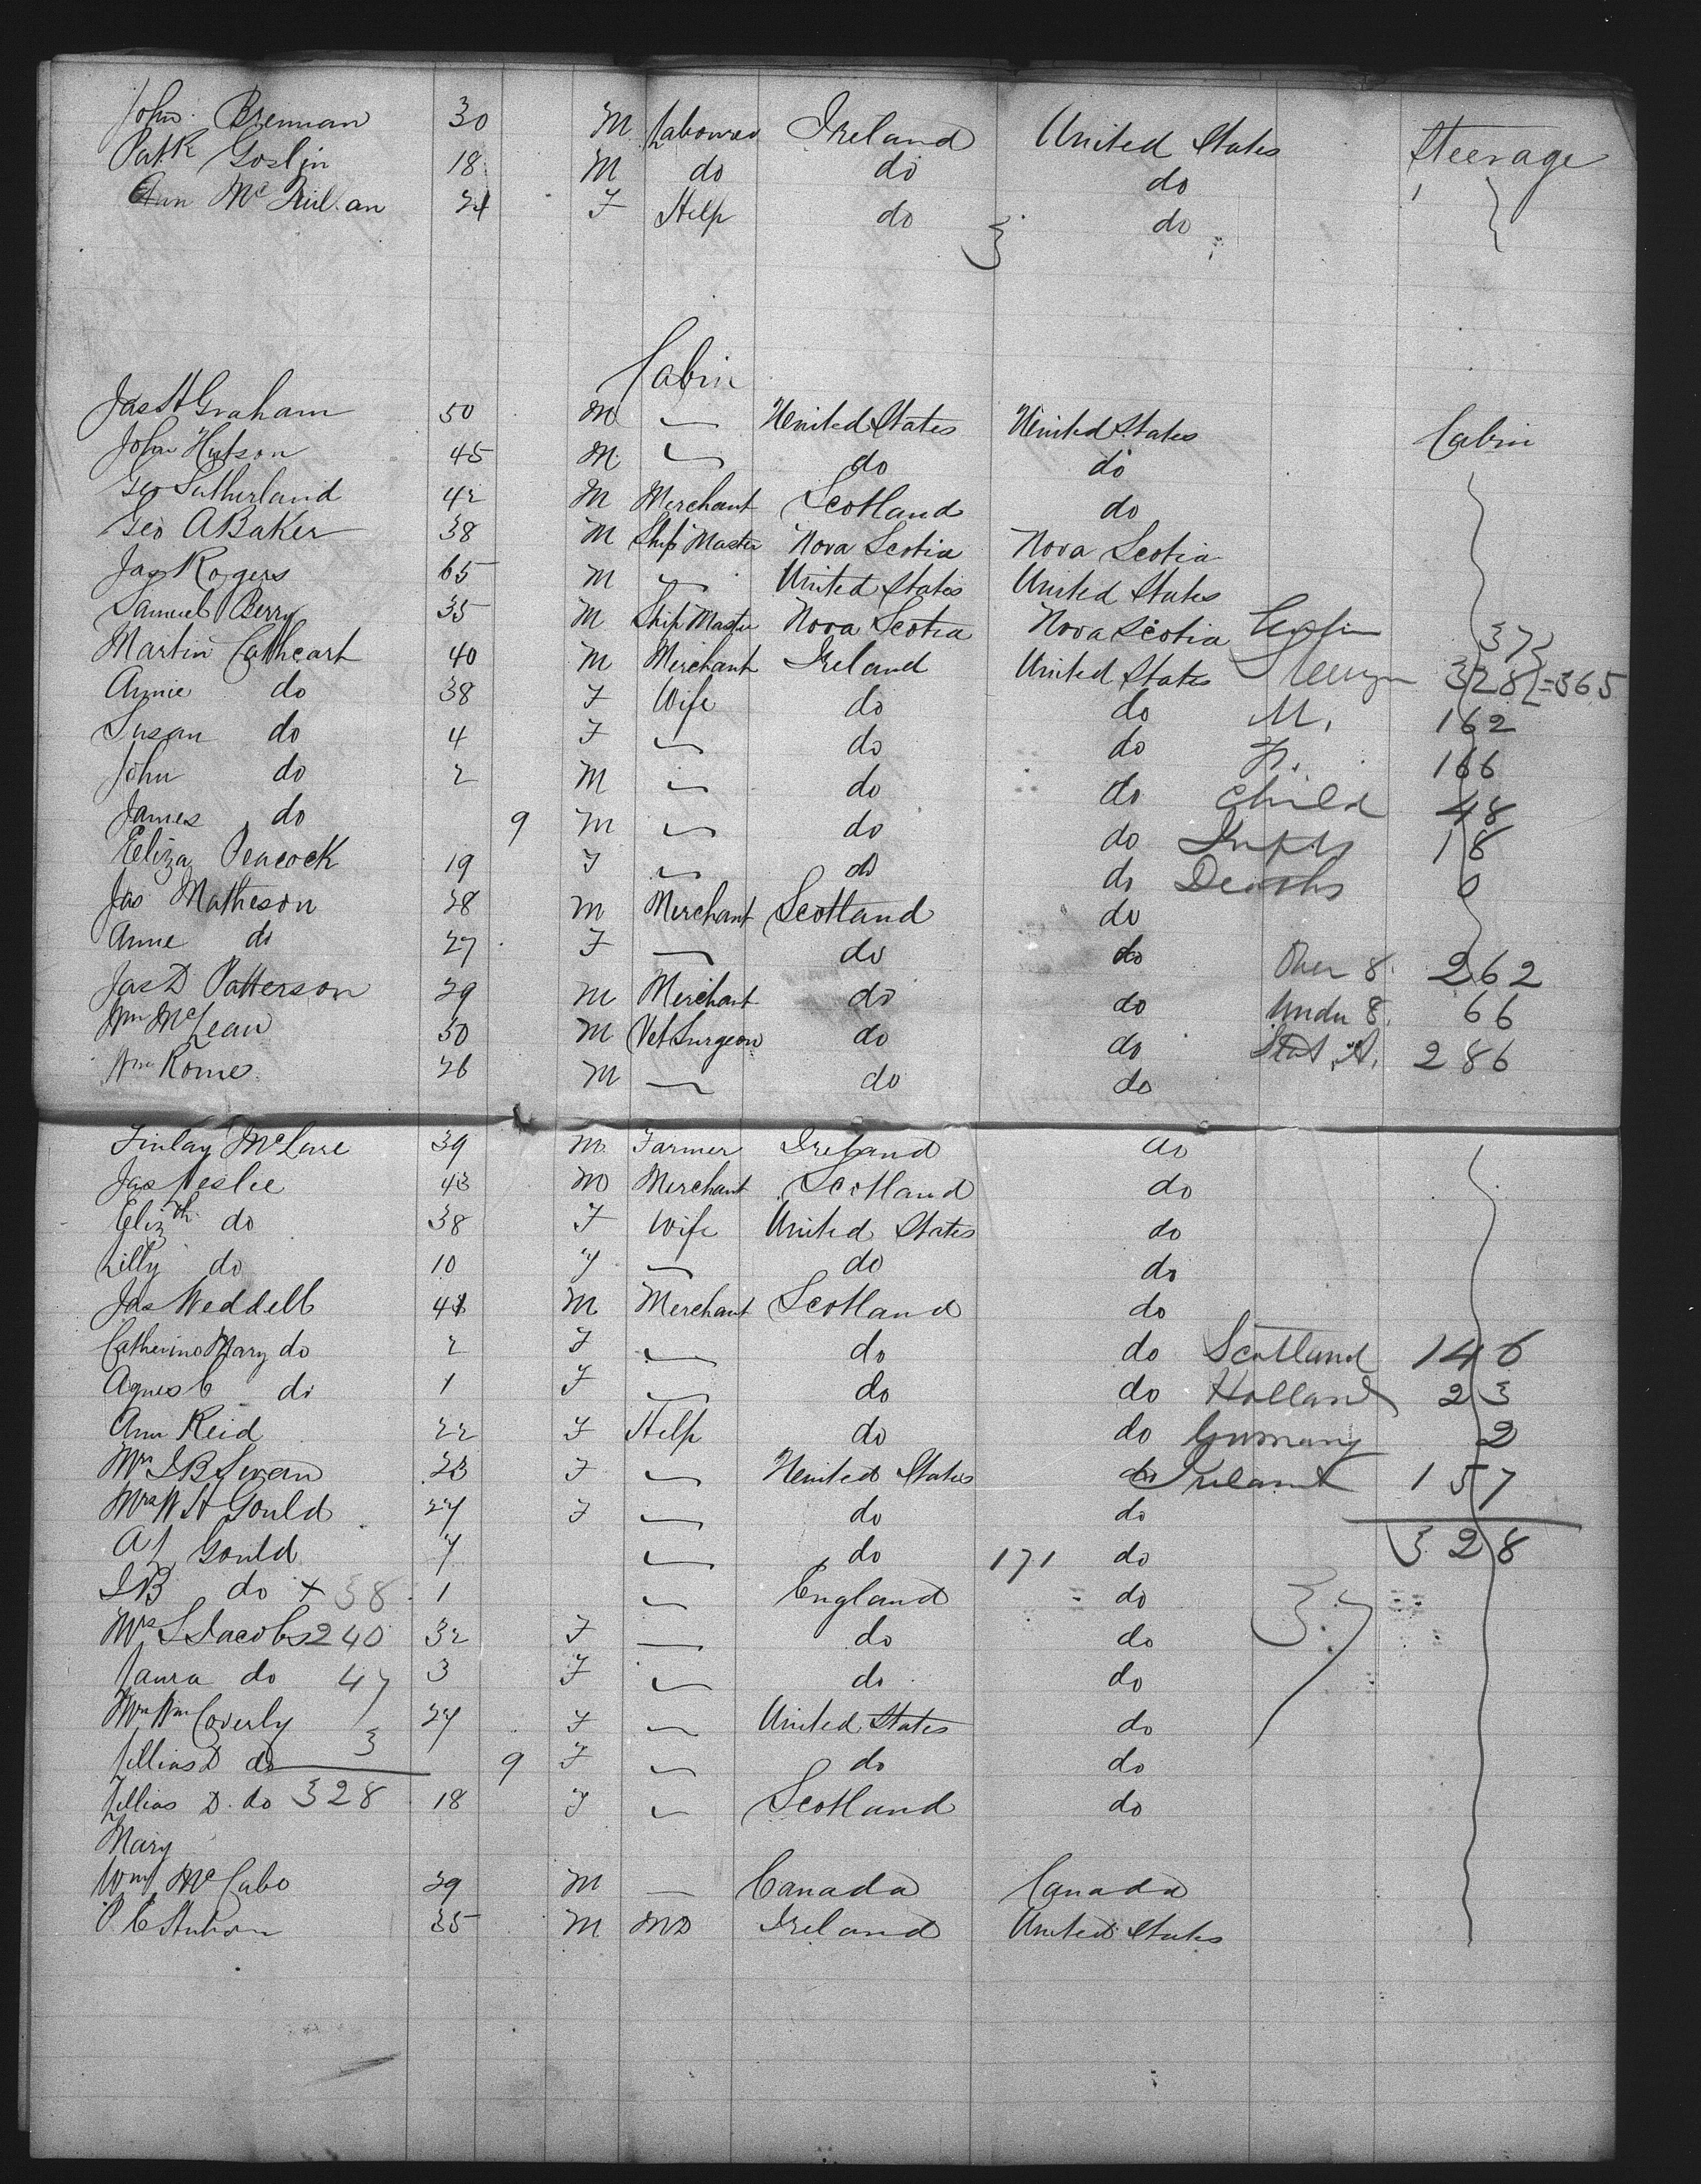 John Brennan 30 M Labourer Ireland United States Steerage
Patk Goslin 18 M do do do
Ann Mc an 24 F Help do do
3
Cabin
Jas H Graham 50 M United States United States Cabin
John Hutson 45 M do do
Geo Sutherland 42 M Merchant Scotland do
Geo A Baker 38 M Ship Master Nova Scotia Nova Scotia
Jas Rogers 65 M United States United States
Samuel Berry 35 M Ship Master Nova Scotia Nova Scotia Cabin 37
Martin Cathcart 40 M Merchant Ireland United States Steerage 328 =365
Annie do 38 F Wife do do M. 162
Susan do 4 F do do F. 166
John do 2 M do do child 48
James do 9 M do do Infts 18
Eliza Peacock 19 F do do Deaths 0
Jas Matheson 28 M Merchant Scotland do
Anne do 27 F do do Over 8 262
Jas D Patterson 29 M Merchant do do Under 8 66
Wm McLean 30 M Vet Surgeon do do Stat. A. 286
Wm Rome 26 M do do
Finlay McLure 39 M Farmer Ireland do
Jas Leslie 43 M Merchant Scotland do
Elizth do 38 F Wife United States do
Lilly do 10 F do do
Jas Weddell 48 M Merchant Scotland do
Catherine Mary do 2 F do do Scotland 146
Agnes C do 1 F do do Holland 23
Ann Reid 22 F Help do do Germany 2
Mrs I B Swan 23 F United States do Ireland 157
Mrs W H Gould 27 F do do
A J Gould 7 do 171 do 328
I B do x 38 1 England do 37
Mrs S Jacobs 240 32 F do do
Laura do 47 3 F do do
Mrs Wm Coverly 27 F United States do
Lillias D do 3 9 F do do
Lillias D. do 328 18 F Scotland do
Mary
Wm McCabe 29 M Canada Canada
P C 35 M MD Ireland United States